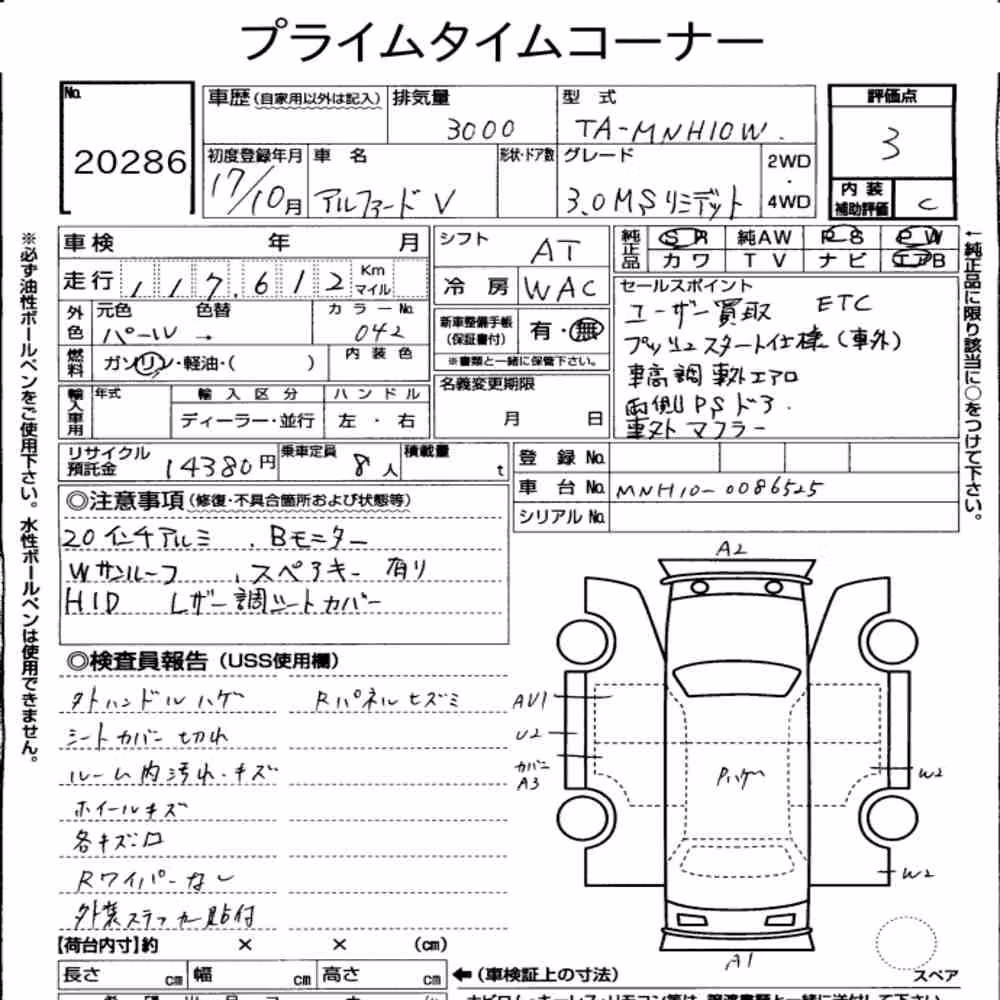 プライムタイムコーナー
No.
20286
車歴(自家用以外は記入)
排気量
3000
型 式
TA-MNH10W.
評価点
3
初度登録年月
17/10月
車 名
アルファードV
形状・ドア数
グレード
3.0MSリミテッド
2WD
・
4WD
内装
補助評価
C
※必ず油性ボールペンをご使用下さい。水性ボールペンは使用できません。
←純正品に限り該当に○をつけて下さい。
車検 年 月
走行 117.612 Km
マイル
シフト
AT
冷房
WAC
純正品
SR 純AW PS PW
カワ TV ナビ エアB
外色
元色 色替
パール →
カラーNo.
042
燃料
ガソリン・軽油・( )
内装色
新車整備手帳
(保証書付)
有・無
※書類と一緒に保管下さい。
セールスポイント
ユーザー買取 ETC
プッシュスタート仕様(車外)
車高調 車外エアロ
両側PSドア.
車外マフラー
輸入車用
年式
輸入区分
ハンドル
ディーラー・並行
左・右
名義変更期限
月 日
リサイクル
預託金
14380円
乗車定員
8人
積載量
t
登録No.
車台No.
MNH10-0086525
シリアルNo.
◎注意事項(修復・不具合箇所および状態等)
20インチアルミ . Bモニター
Wサンルーフ . スペアキー 有り
HID レザー調シートカバー
◎検査員報告(USS使用欄)
外ハンドルハゲ
Rパネルヒズミ
シートカバー切れ
ルーム内汚れ・キズ
ホイールキズ
各キズ凹
Rワイパーなし
外装ステッカー貼付
A2
AU1
U2
カバー
A3
Pハゲ
W2
W2
A1
スペア
【荷台内寸】約 × × (cm)
長さ cm
幅 cm
高さ cm
←(車検証上の寸法)